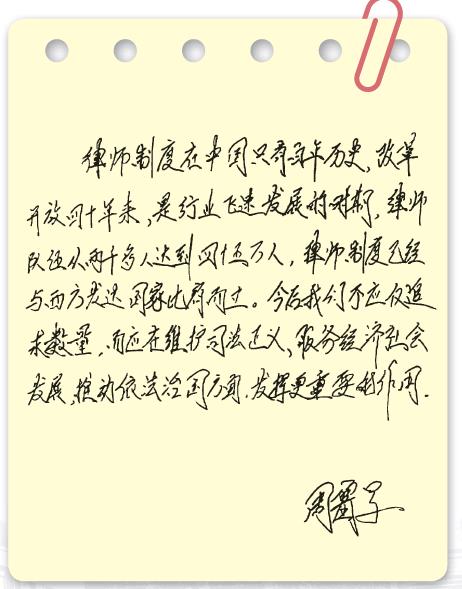 律师制度在中国只有百年历史,改革
开放四十年来,是行业飞速发展的时期,律师
队伍从两千多人达到四十五万人,律师制度已经
与西方发达国家比肩而立。今后我们不应仅追
求数量,而应在维护司法正义、服务经济社会
发展、推动依法治国方面,发挥更重要的作用.
周